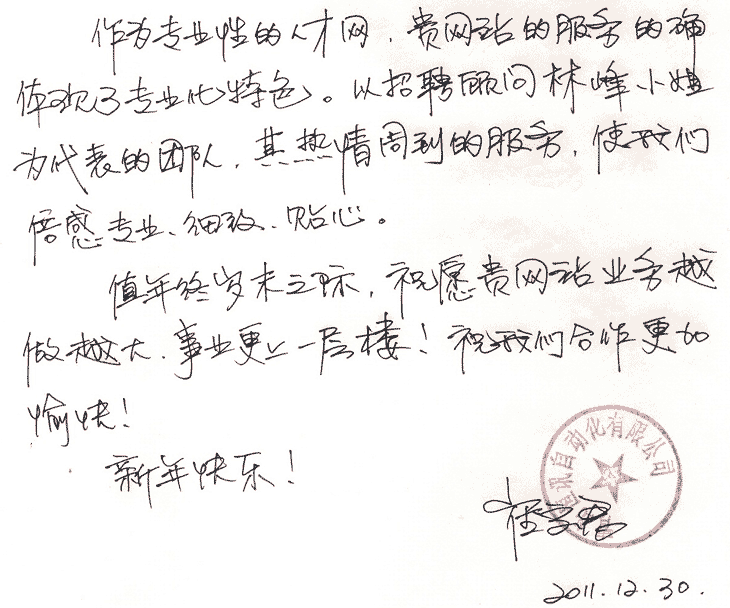 作为专业性的人才网，贵网站的服务的确
体现了专业化特色。以招聘顾问林峰小姐
为代表的团队，其热情周到的服务，使我们
倍感专业、细致、贴心。
值年终岁末之际，祝愿贵网站业务越
做越大、事业更上一层楼！祝我们合作更加
愉快！
新年快乐！
讯自动化有限公司
2011.12.30.